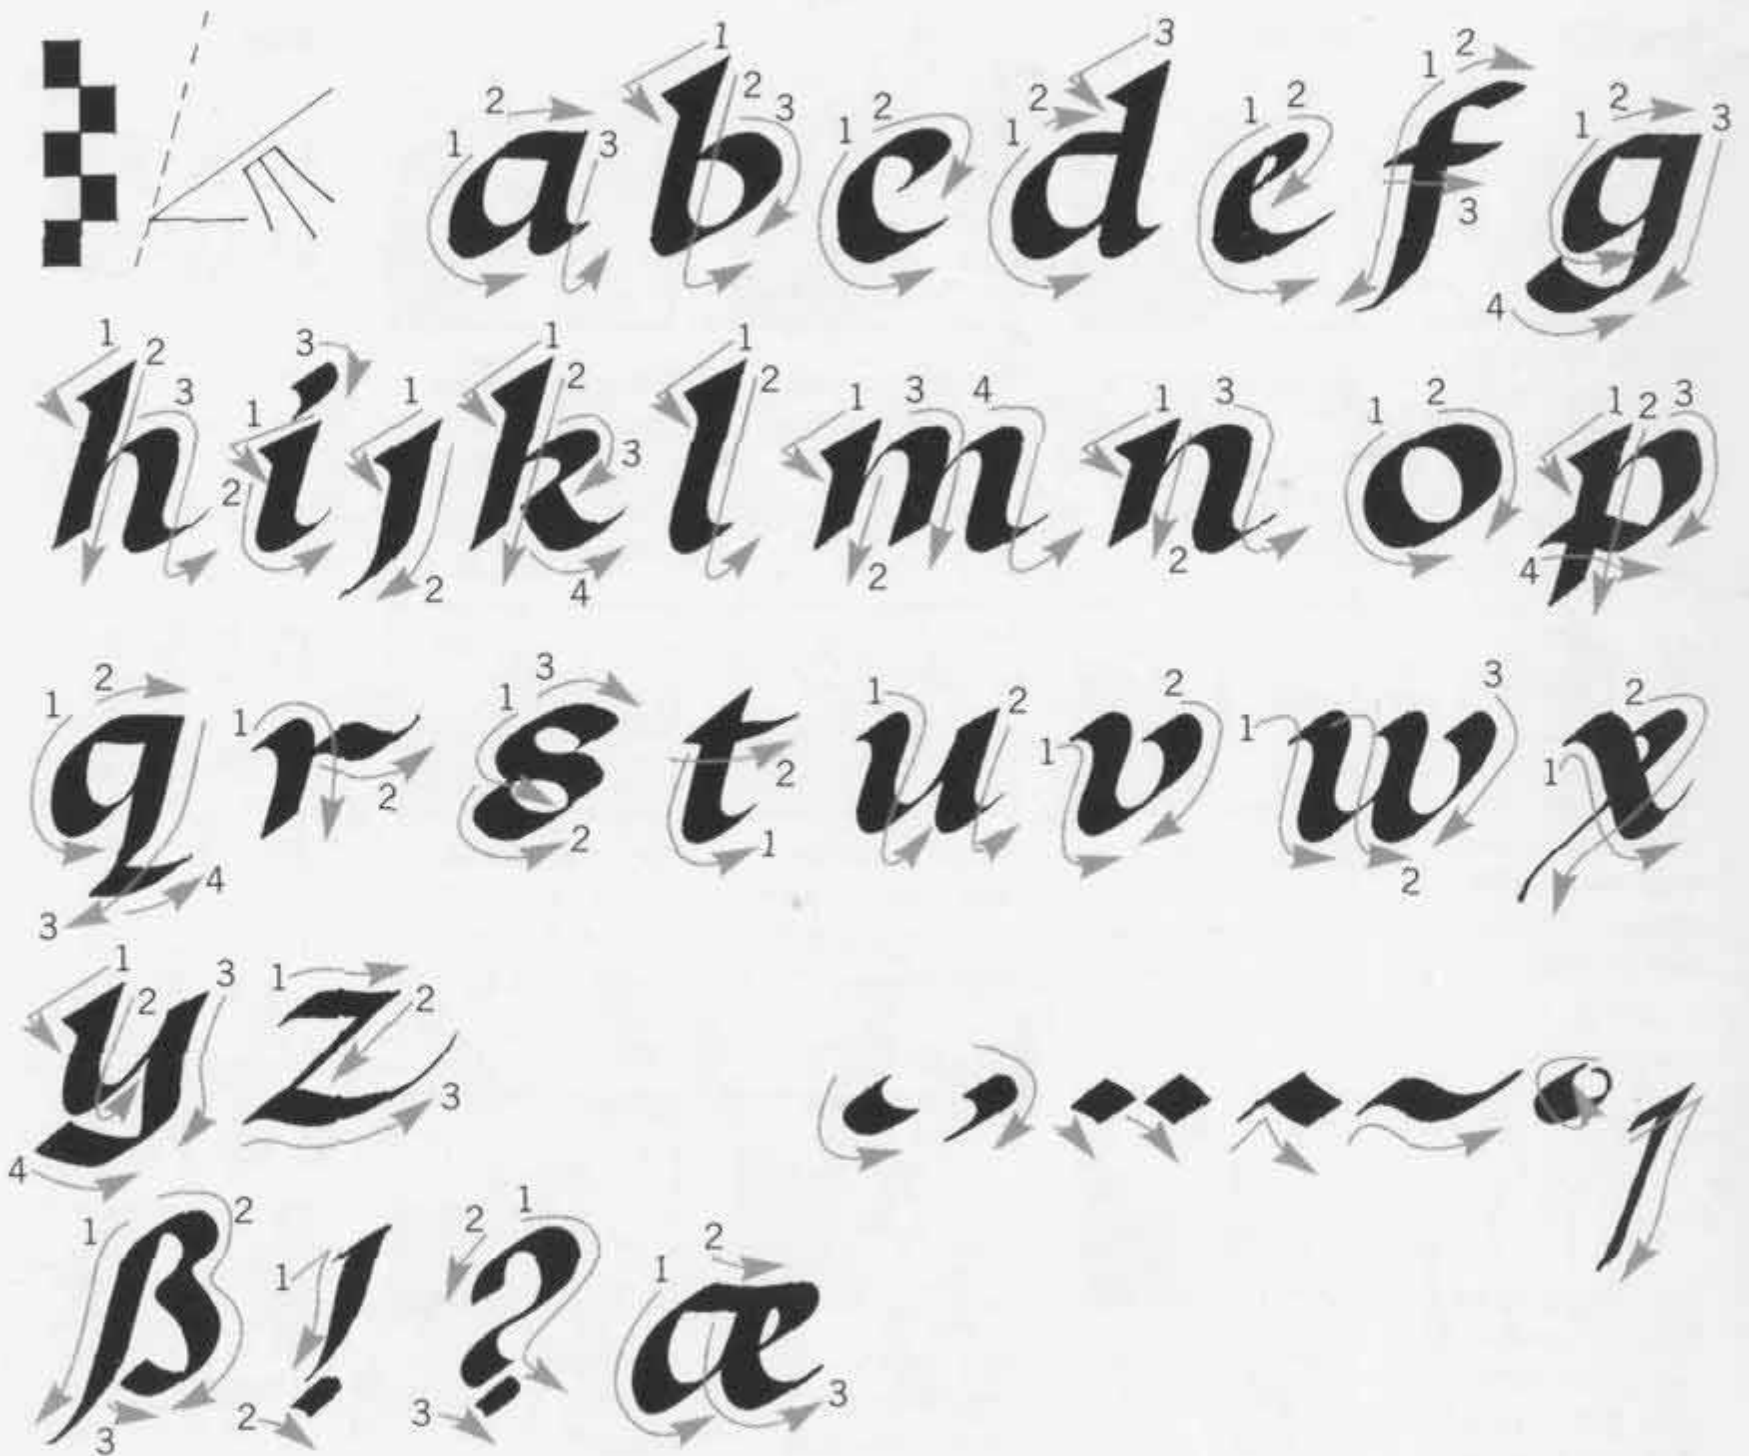 a b c d e f g
h i j k l m n o p
q r s t u v w x
y z
ß ! ? æ